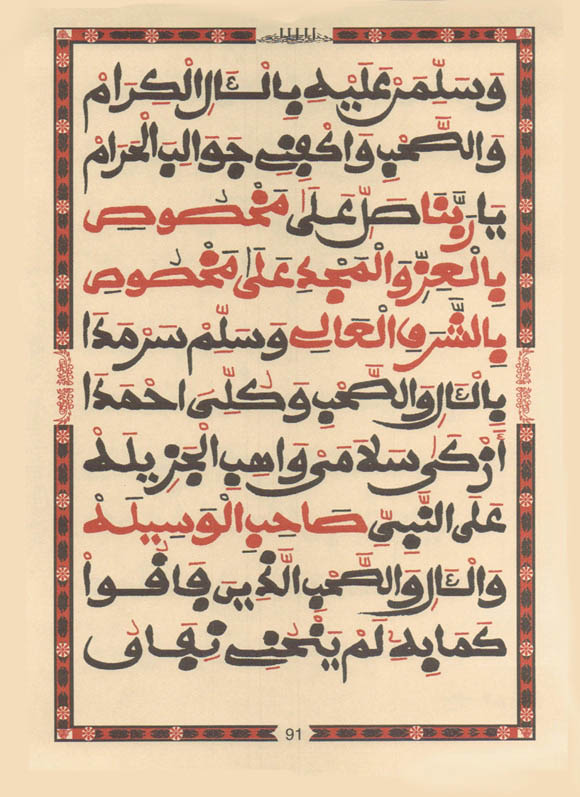 وَسَلِّمَنْ عَلَيْهِ بِالْآلِ الْكِرَامْ
وَالصَّحْبِ وَاكْفِنِي جَوَالِبَ الْحَرَامْ
يَا رَبَّنَا صَلِّ عَلَى مَخْصُوصِ
بِالْعِزِّ وَالْمَجْدِ عَلَى مَخْصُوصِ
بِالشَّرَفِ الْعَالِي وَسَلِّمْ سَرْمَدَا
بِالْآلِ وَالصَّحْبِ وَكُلِّي احْمَدَا
أَزْكَى سَلَامَيْ وَاهِبِ الْجَزِيلَهْ
عَلَى النَّبِيِّ صَاحِبِ الْوَسِيلَهْ
وَالْآلِ وَالصَّحْبِ الَّذِينَ فَاقُواْ
كَمَا بِهِ لَمْ يَنْحُنِي نِفَاقُ
91